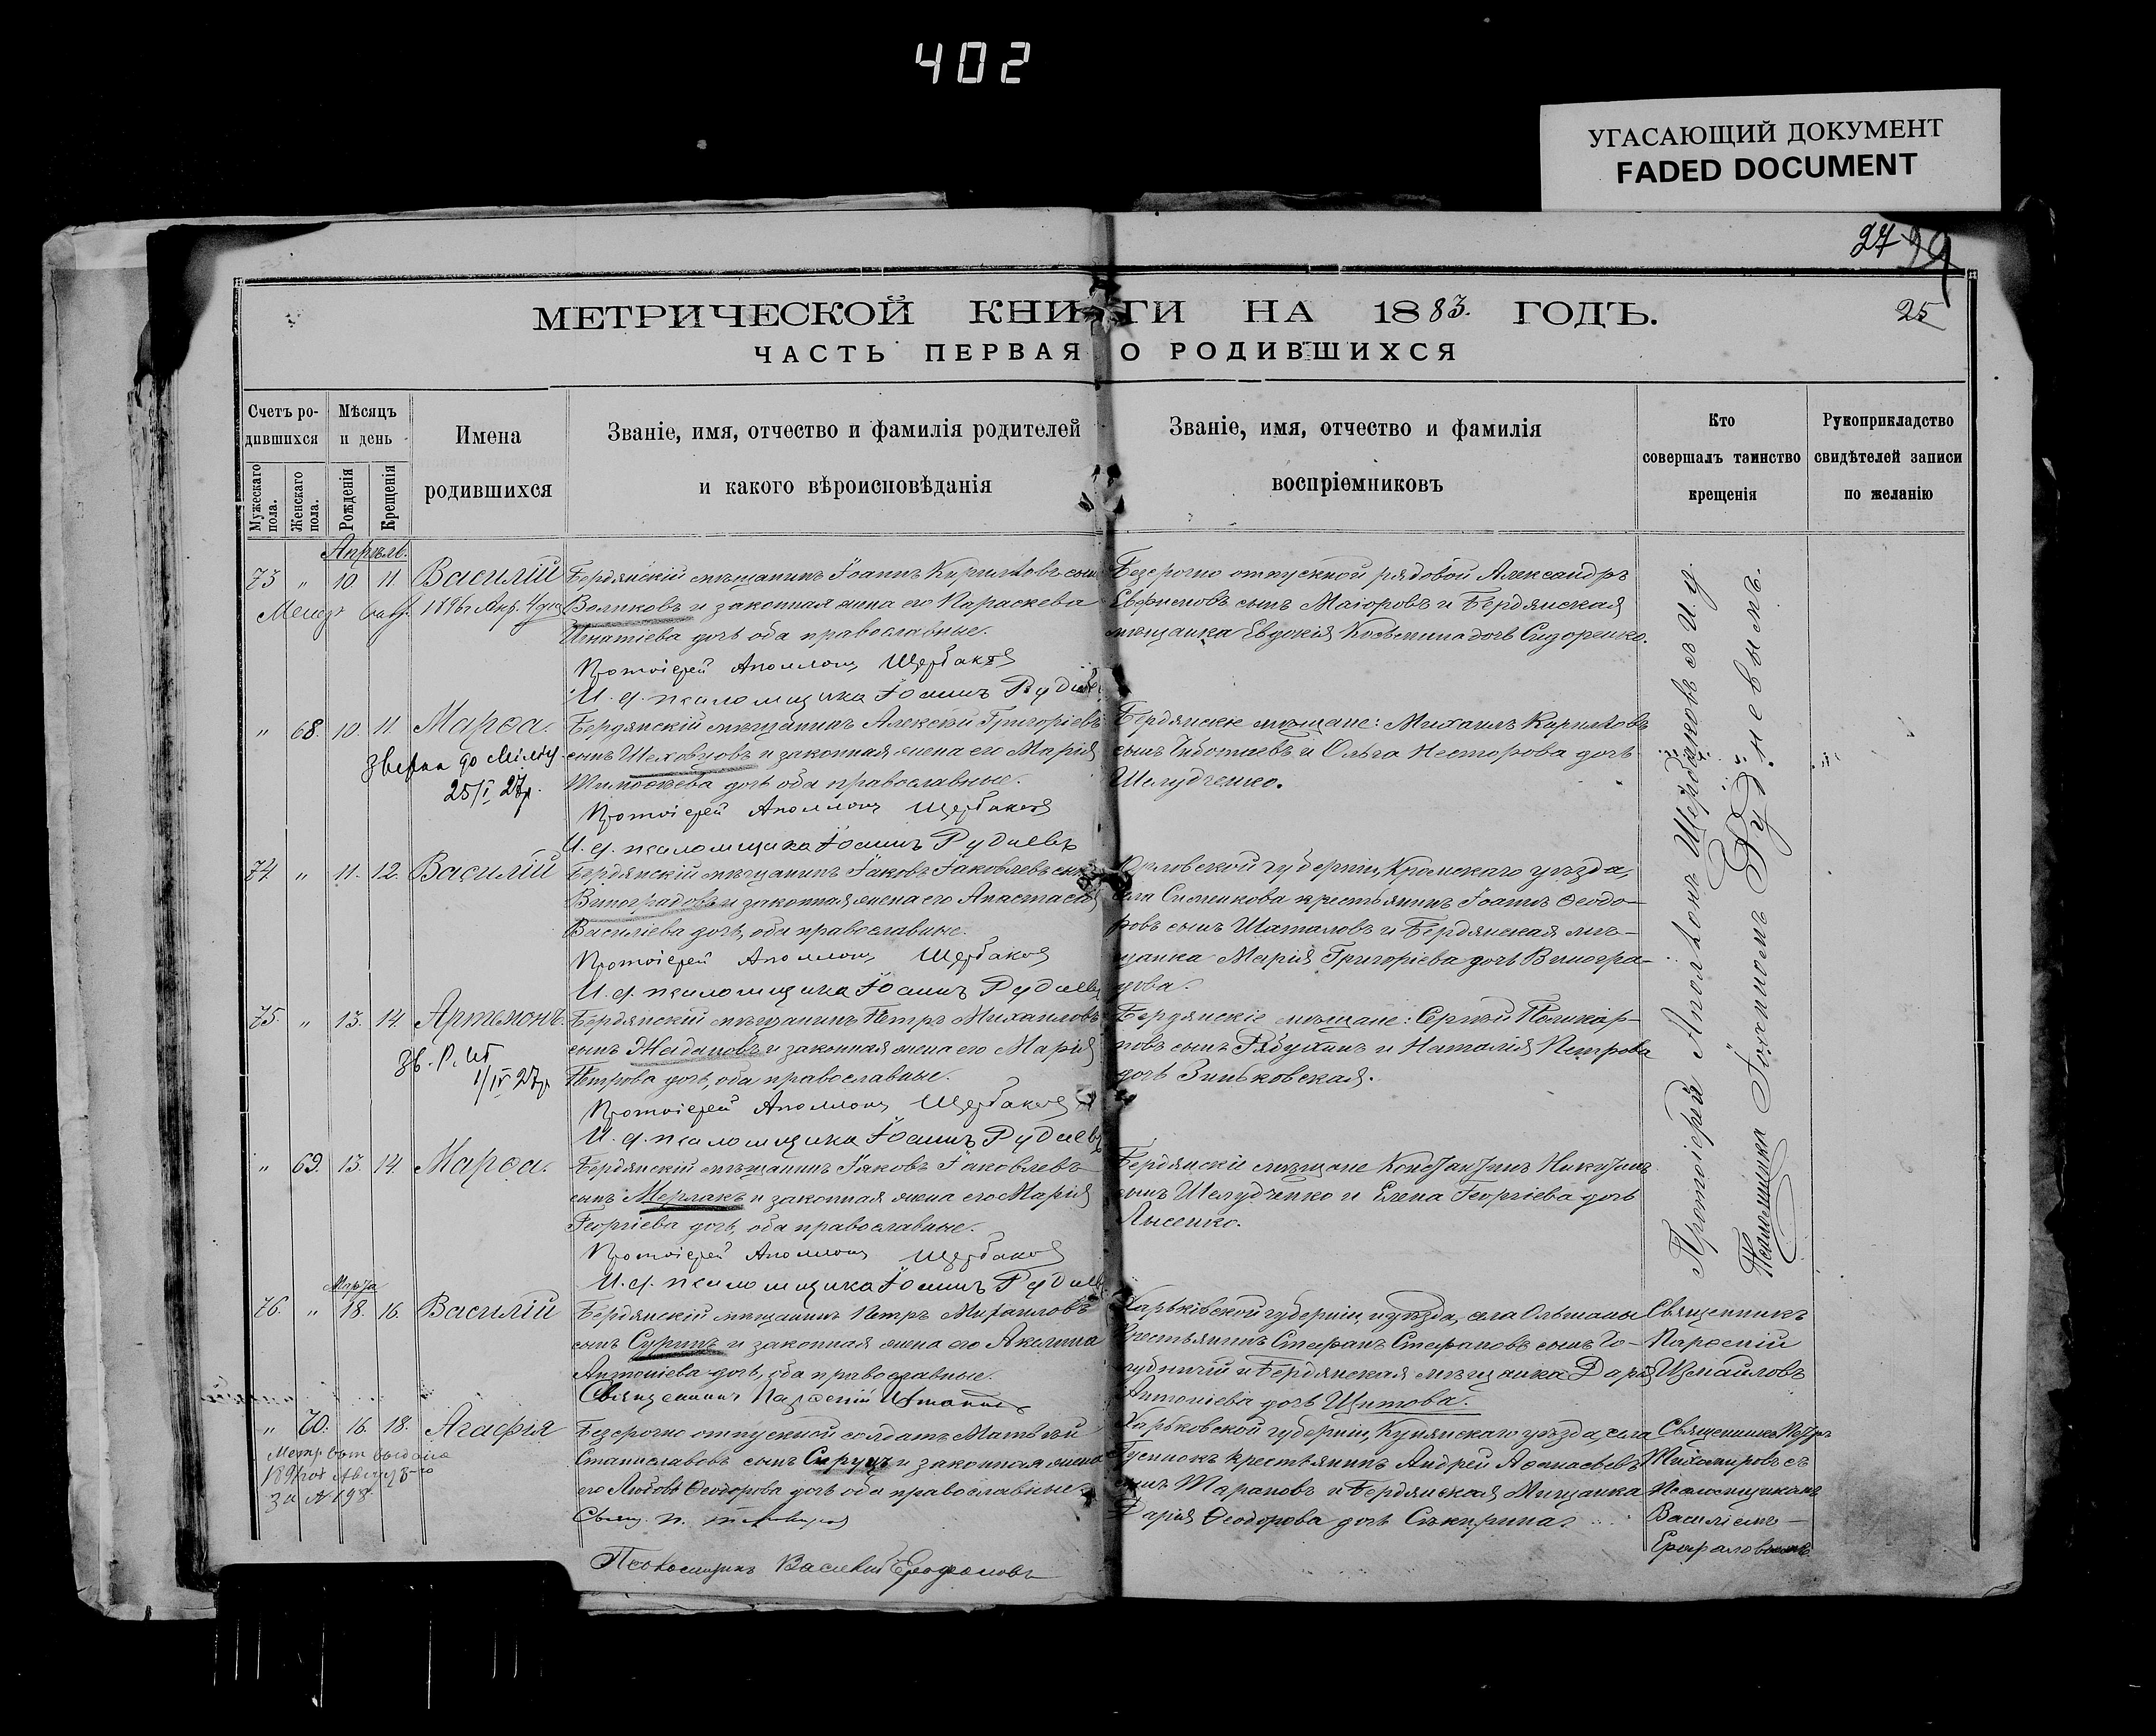 402
УГАСАЮЩИЙ ДОКУМЕНТ
FADED DOCUMENT
27
25
МЕТРИЧЕСКОЙ КНИГИ НА 1883. ГОДЪ.
ЧАСТЬ ПЕРВАЯ О РОДИВШИХСЯ
Счетъ родившихся
Мужескаго пола.
Женскаго пола.
Мѣсяцъ и день
Рожденія
Крещенія
Имена родившихся
Званіе, имя, отчество и фамилія родителей
и какого вѣроисповѣданія
Званіе, имя, отчество и фамилія
воспріемниковъ
Кто
совершалъ таинство
крещенія
Рукоприкладство
свидѣтелей записи
по желанію
Апрѣль.
73 " 10. 11. Василій
Бердянскій мѣщанинъ Іоаннъ Кирилловъ сынъ
Воликовъ и законная жена его Параскева
Игнатіева дочь оба православные.
Протоіерей Аполлонъ Щербаковъ
И. д. псаломщика Іоаннъ Рудневъ
Безсрочно отпускной рядовой Александръ
Евфимовъ сынъ Маіоровъ и Бердянская
мѣщанка Евдокія Косьмина дочь Сидоренко.
Протоіерей Аполлонъ Щербаковъ съ И. д.
Псаломщика Іоанномъ Рудневымъ.
" 68. 10. 11. Марѳа.
25/I 27р.
Бердянскій мѣщанинъ Алексѣй Григоріевъ
сынъ Шеховцовъ и законная жена его Марія
Тимоѳеева дочь оба православные.
Протоіерей Аполлонъ Щербаковъ
И. д. псаломщика Іоаннъ Рудневъ
Бердянскіе мѣщане: Михаилъ Кирилловъ
сынъ Чиботаевъ и Ольга Несторова дочь
Шелудченко.
74. " 11. 12. Василій
Бердянскій мѣщанинъ Іаковъ Іаковлевъ сынъ
Виноградовъ и законная жена его Анастасія
Василіева дочь, оба православные.
Протоіерей Аполлонъ Щербаковъ
И. д. псаломщика Іоаннъ Рудневъ
Орловской губерніи, Кромскаго уѣзда,
села Сименкова крестьянинъ Іоаннъ Ѳеодо-
ровъ сынъ Шаталовъ и Бердянская мѣ-
щанка Марія Григоріева дочь Виногра-
дова.
75. " 13. 14. Артемонъ.
1/IV 27р
Бердянскій мѣщанинъ Петръ Михаиловъ
сынъ Жадановъ и законная жена его Марія
Петрова дочь, оба православные.
Протоіерей Аполлонъ Щербаковъ
И. д. псаломщика Іоаннъ Рудневъ
Бердянскіе мѣщане: Сергѣй Поликар-
повъ сынъ Рябухинъ и Наталія Петрова
дочь Зиньковская.
" 69. 13. 14. Марѳа.
Бердянскій мѣщанинъ Іаковъ Іаковлевъ
сынъ Мерлакъ и законная жена его Марія
Георгіева дочь, оба православные.
Протоіерей Аполлонъ Щербаковъ
И. д. псаломщика Іоаннъ Рудневъ
Бердянскіе мѣщане Константинъ Никитинъ
сынъ Шелудченко и Елена Георгіева дочь
Лысенко.
Марта
76. " 18. 16. Василій
Бердянскій мѣщанинъ Петръ Михаиловъ
сынъ Суринъ и законная жена его Акилина
Антоніева дочь, оба православные.
Священникъ Парѳеній Измаиловъ
Харьковской губерніи и уѣзда, села Ольшаны
крестьянинъ Стефанъ Стефановъ сынъ Го-
лубничій и Бердянская мѣщанка Дарія
Антоніева дочь Щитова.
Священникъ
Парѳеній
Измаиловъ
" 70. 16. 18. Агафія
Метр. вып. выдана
за № 198
Безсрочно отпускной солдатъ Матѳѣй
Станиславовъ сынъ Сируцъ и законная жена
его Любовь Ѳеодорова дочь оба православные.
Псаломщикъ Василій Ерофаловъ
Харьковской губерніи, Купянскаго уѣзда, села
Гусинокъ крестьянинъ Андрей Аѳанасьевъ
сынъ Тарановъ и Бердянская Мѣщанка
Дарія Ѳеодорова дочь Сѣкирина.
Священникъ Петръ
Тихомировъ съ
Псаломщикомъ
Василіемъ
Ерофаловымъ